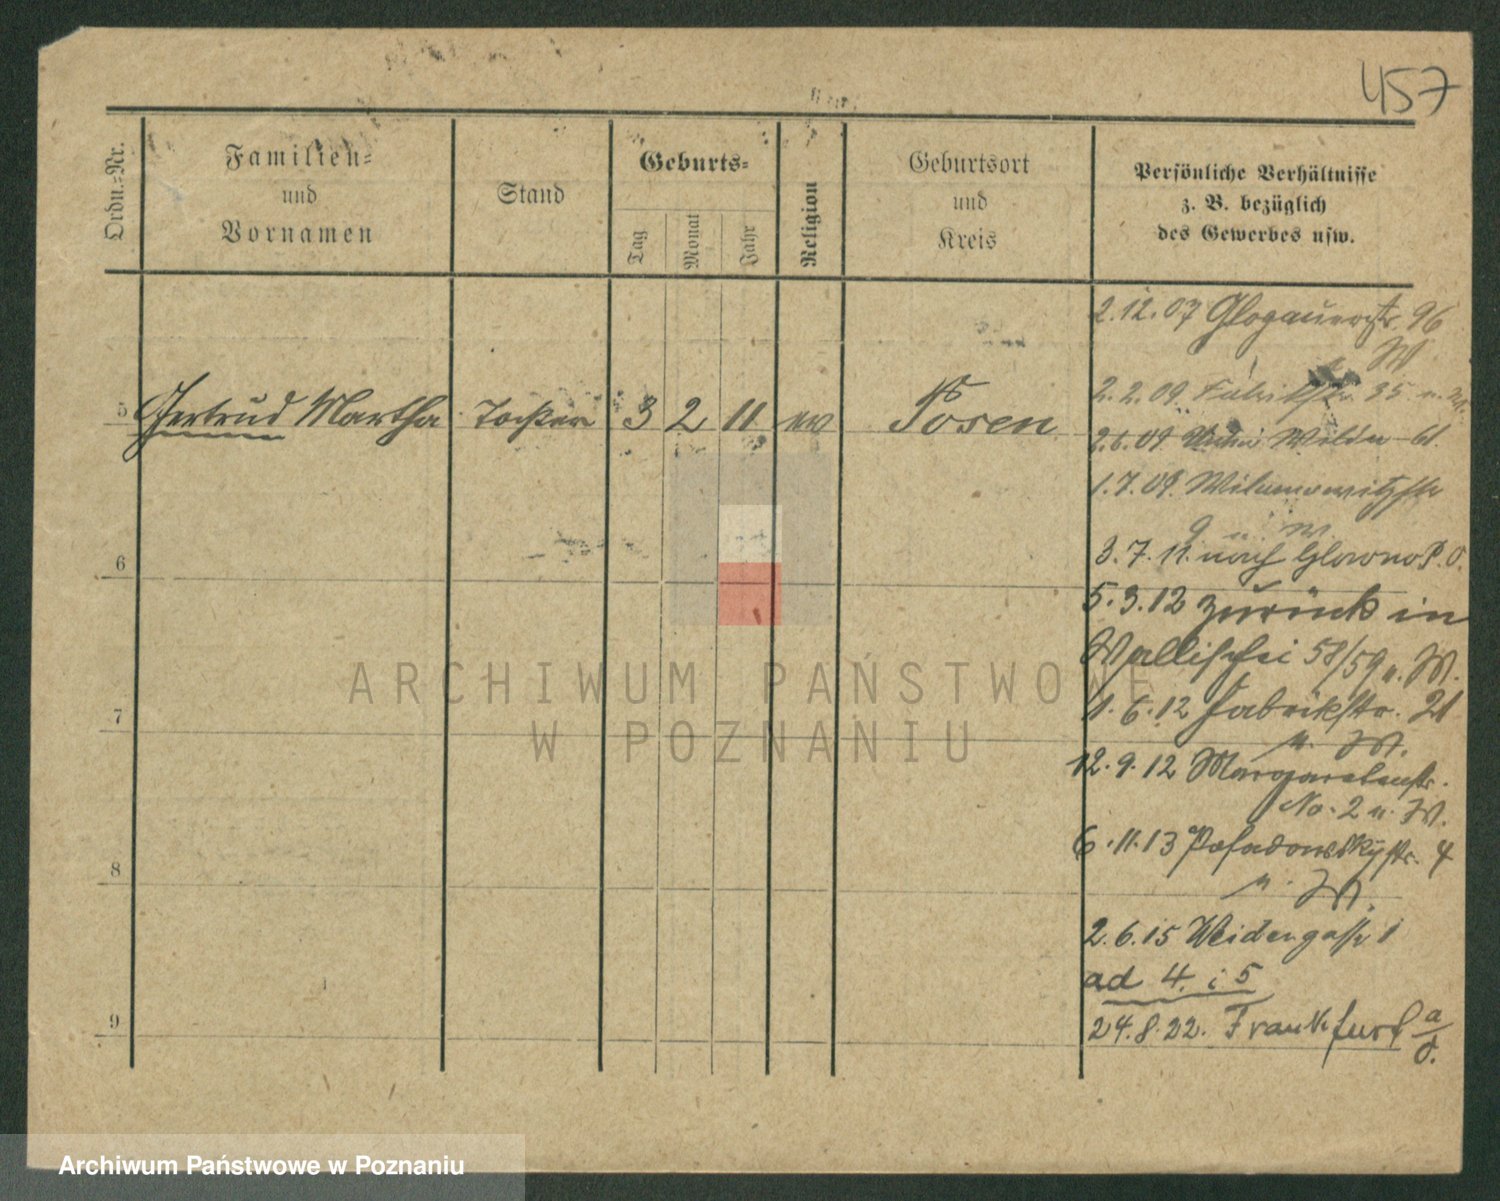 457
Ordn.-Nr.
Familien-
und
Vornamen
Stand
Geburts-
Tag
Monat
Jahr
Religion
Geburtsort
und
Kreis
Persönliche Verhältnisse
z. B. bezüglich
des Gewerbes usw.
2.12.07 Glogauerstr. 96
W
2.2.09 Fabrikstr. 35 u. W.
5 Gertrud Martha Tochter 3 2 11 ev Posen
2.6.09 Wilda
1.7.09. Wilamowitzstr
9 u W
3.7.11. nach Glowno P. O.
6
5.3.12 zurück in
Wallischei 58/59 u. W.
1.6.12 Fabrikstr. 21
u. W.
7
12.9.12 Margaretenstr.
No. 2 u. W.
6.11.13 Posadowskystr. 4
u. W.
8
2.6.15 Weidengasse 1
ad 4. i 5
24.8.22. Frankfurt a/O.
9
ARCHIWUM PAŃSTWOWE
W POZNANIU
Archiwum Państwowe w Poznaniu